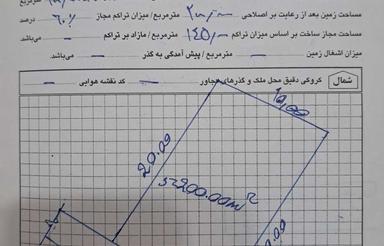 مساحت زمین بعد از رعایت بر اصلاحی ۲۰۰/۰۰ مترمربع / میزان تراکم مجاز ۶۰٪ درصد
مساحت مجاز ساخت بر اساس میزان تراکم ۱۴۵/۰۰ مترمربع / مازاد بر تراکم – می‌باشد
میزان اشغال زمین – مترمربع / پیش آمدگی به گذر – می‌باشد.
شمال
کروکی دقیق محل ملک و گذرهای مجاور
کد نقشه هوایی –
10,00
20.00
S=200.00m²